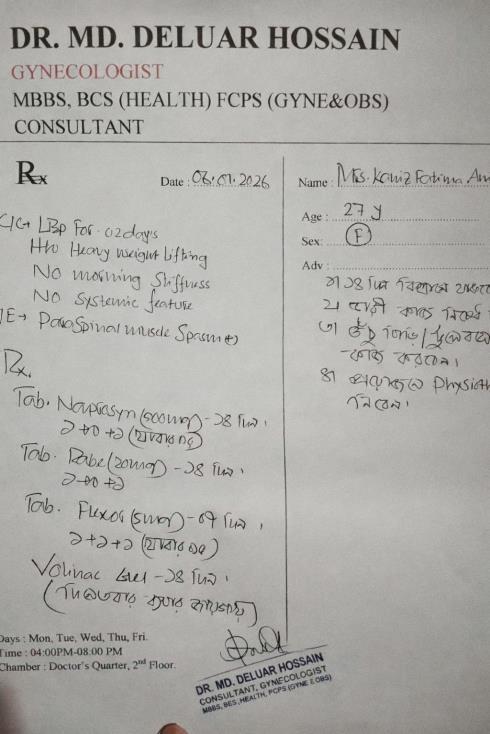 DR. MD. DELUAR HOSSAIN
GYNECOLOGIST
MBBS, BCS (HEALTH) FCPS (GYNE&OBS)
CONSULTANT
Rx
Date : 06.01.2026
C/C→ LBP For 02 days
H/o Heavy weight Lifting
No morning Stiffness
No systemic feature
/E→ Paraspinal muscle Spasm (+)
Rx.
Tab. Naprosyn (500mg) - ১৪ দিন ।
১+০+১ (খাবার পর)
Tab. Rabe (20mg) - ১৪ দিন ।
১+০+১
Tab. Flexor (5mg) - ০৭ দিন ।
১+১+১ (খাবার পর)
Volinac Gel - ১৪ দিন ।
(ব্যথার জায়গায়)
Name : Mrs. Kaniz Fatima Am
Age : 27 y
Sex: F
Adv :
১৪ দিন বিশ্রামে
২। ভারী কাজ নিষেধ
৩। উঁচু
কাজ করবেন।
৪। প্রয়োজনে Physioth
নিবেন।
Days : Mon, Tue, Wed, Thu, Fri.
Time : 04:00PM-08:00 PM
Chamber : Doctor's Quarter, 2nd Floor.
DR. MD. DELUAR HOSSAIN
CONSULTANT, GYNECOLOGIST
MBBS, BES ,HEALTH, FCPS (GYNE & OBS)